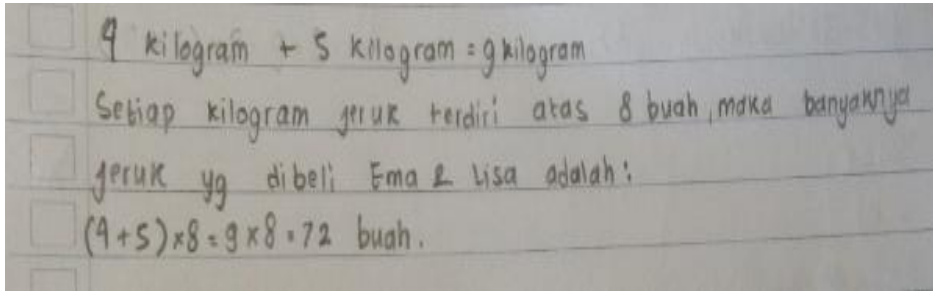 4 kilogram + 5 kilogram = 9 kilogram
Setiap kilogram jeruk terdiri atas 8 buah, maka banyaknya
jeruk yg dibeli Ema & Lisa adalah:
(4+5)×8 = 9×8 = 72 buah.